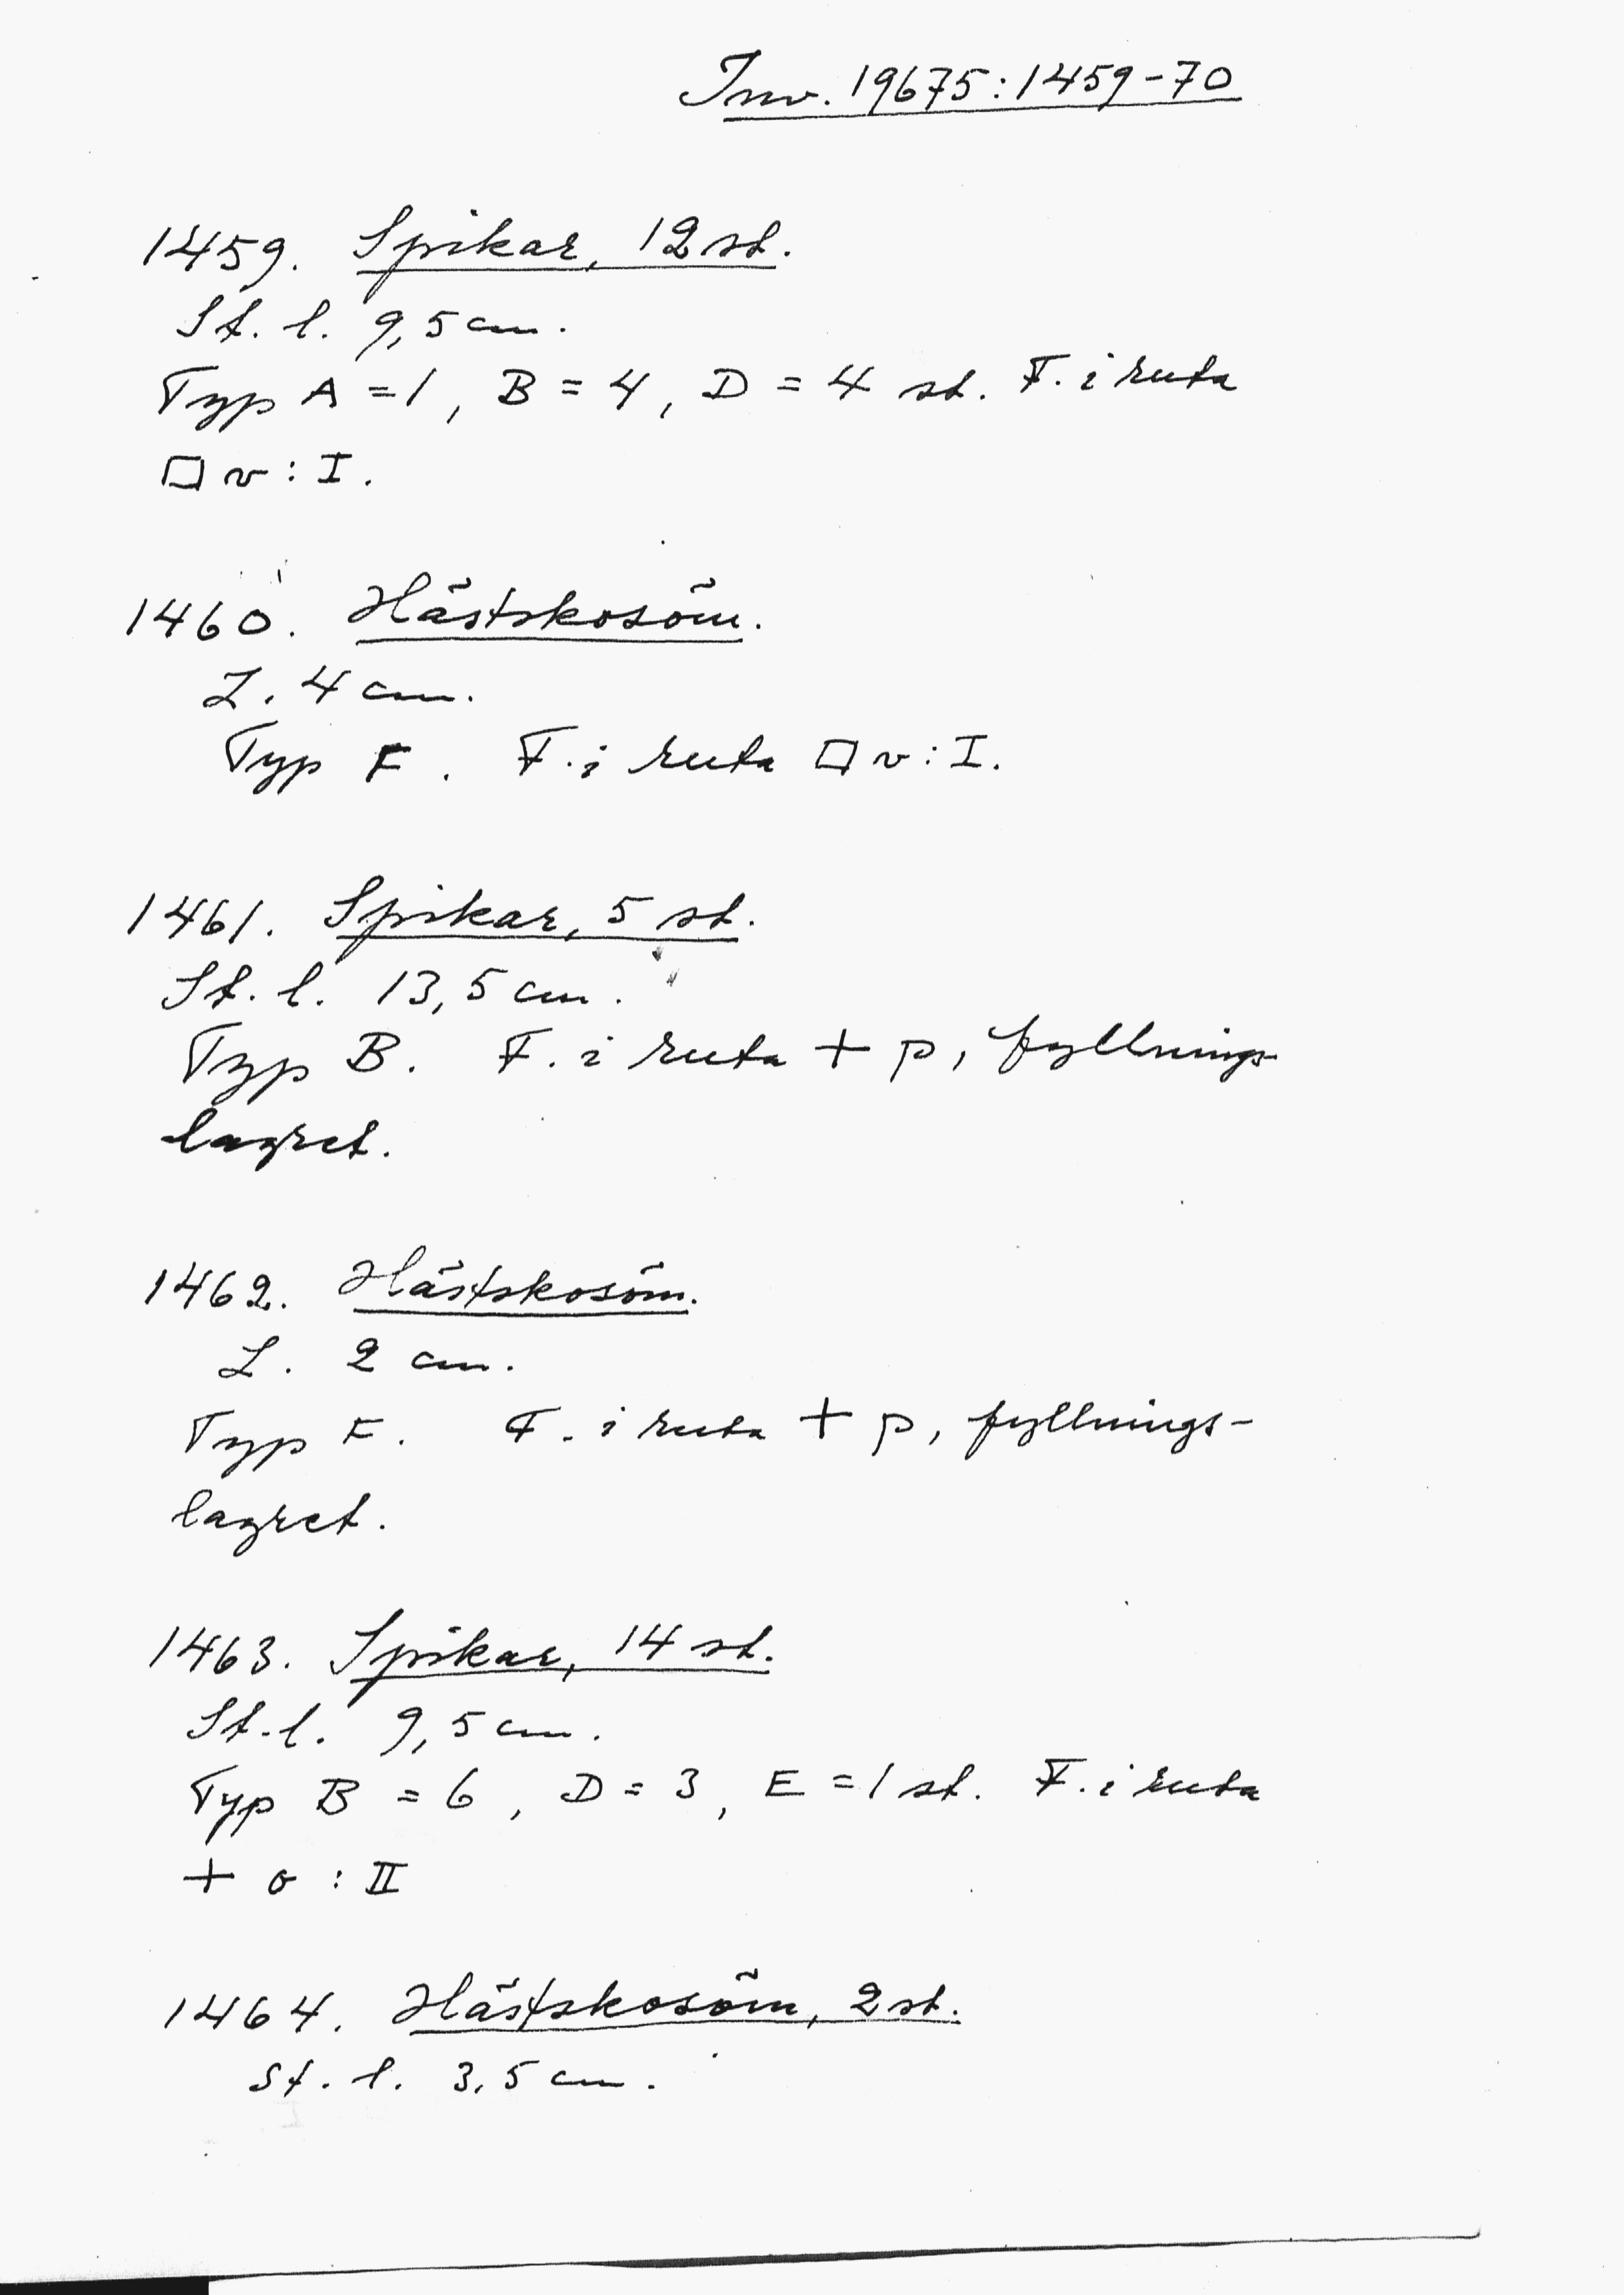 Inv. 19675:1459-70
1459. Spikar, 12 st.
St. l. 9,5 cm.
Typ A = 1, B = 4, D = 4 st. F. i ruta
□ v : I.
1460. Hästskosöm.
L. 4 cm.
Typ F. F. i ruta □ v : I.
1461. Spikar, 5 st.
St. l. 13,5 cm.
Typ B. F. i ruta + p, fyllnings-
lagret.
1462. Hästskosöm.
L. 2 cm.
Typ F. F. i ruta + p, fyllnings-
lagret.
1463. Spikar, 14 st.
St. l. 9,5 cm.
Typ B = 6, D = 3, E = 1 st. F. i ruta
+ o : II
1464. Hästskosöm, 2 st.
St. l. 3,5 cm.